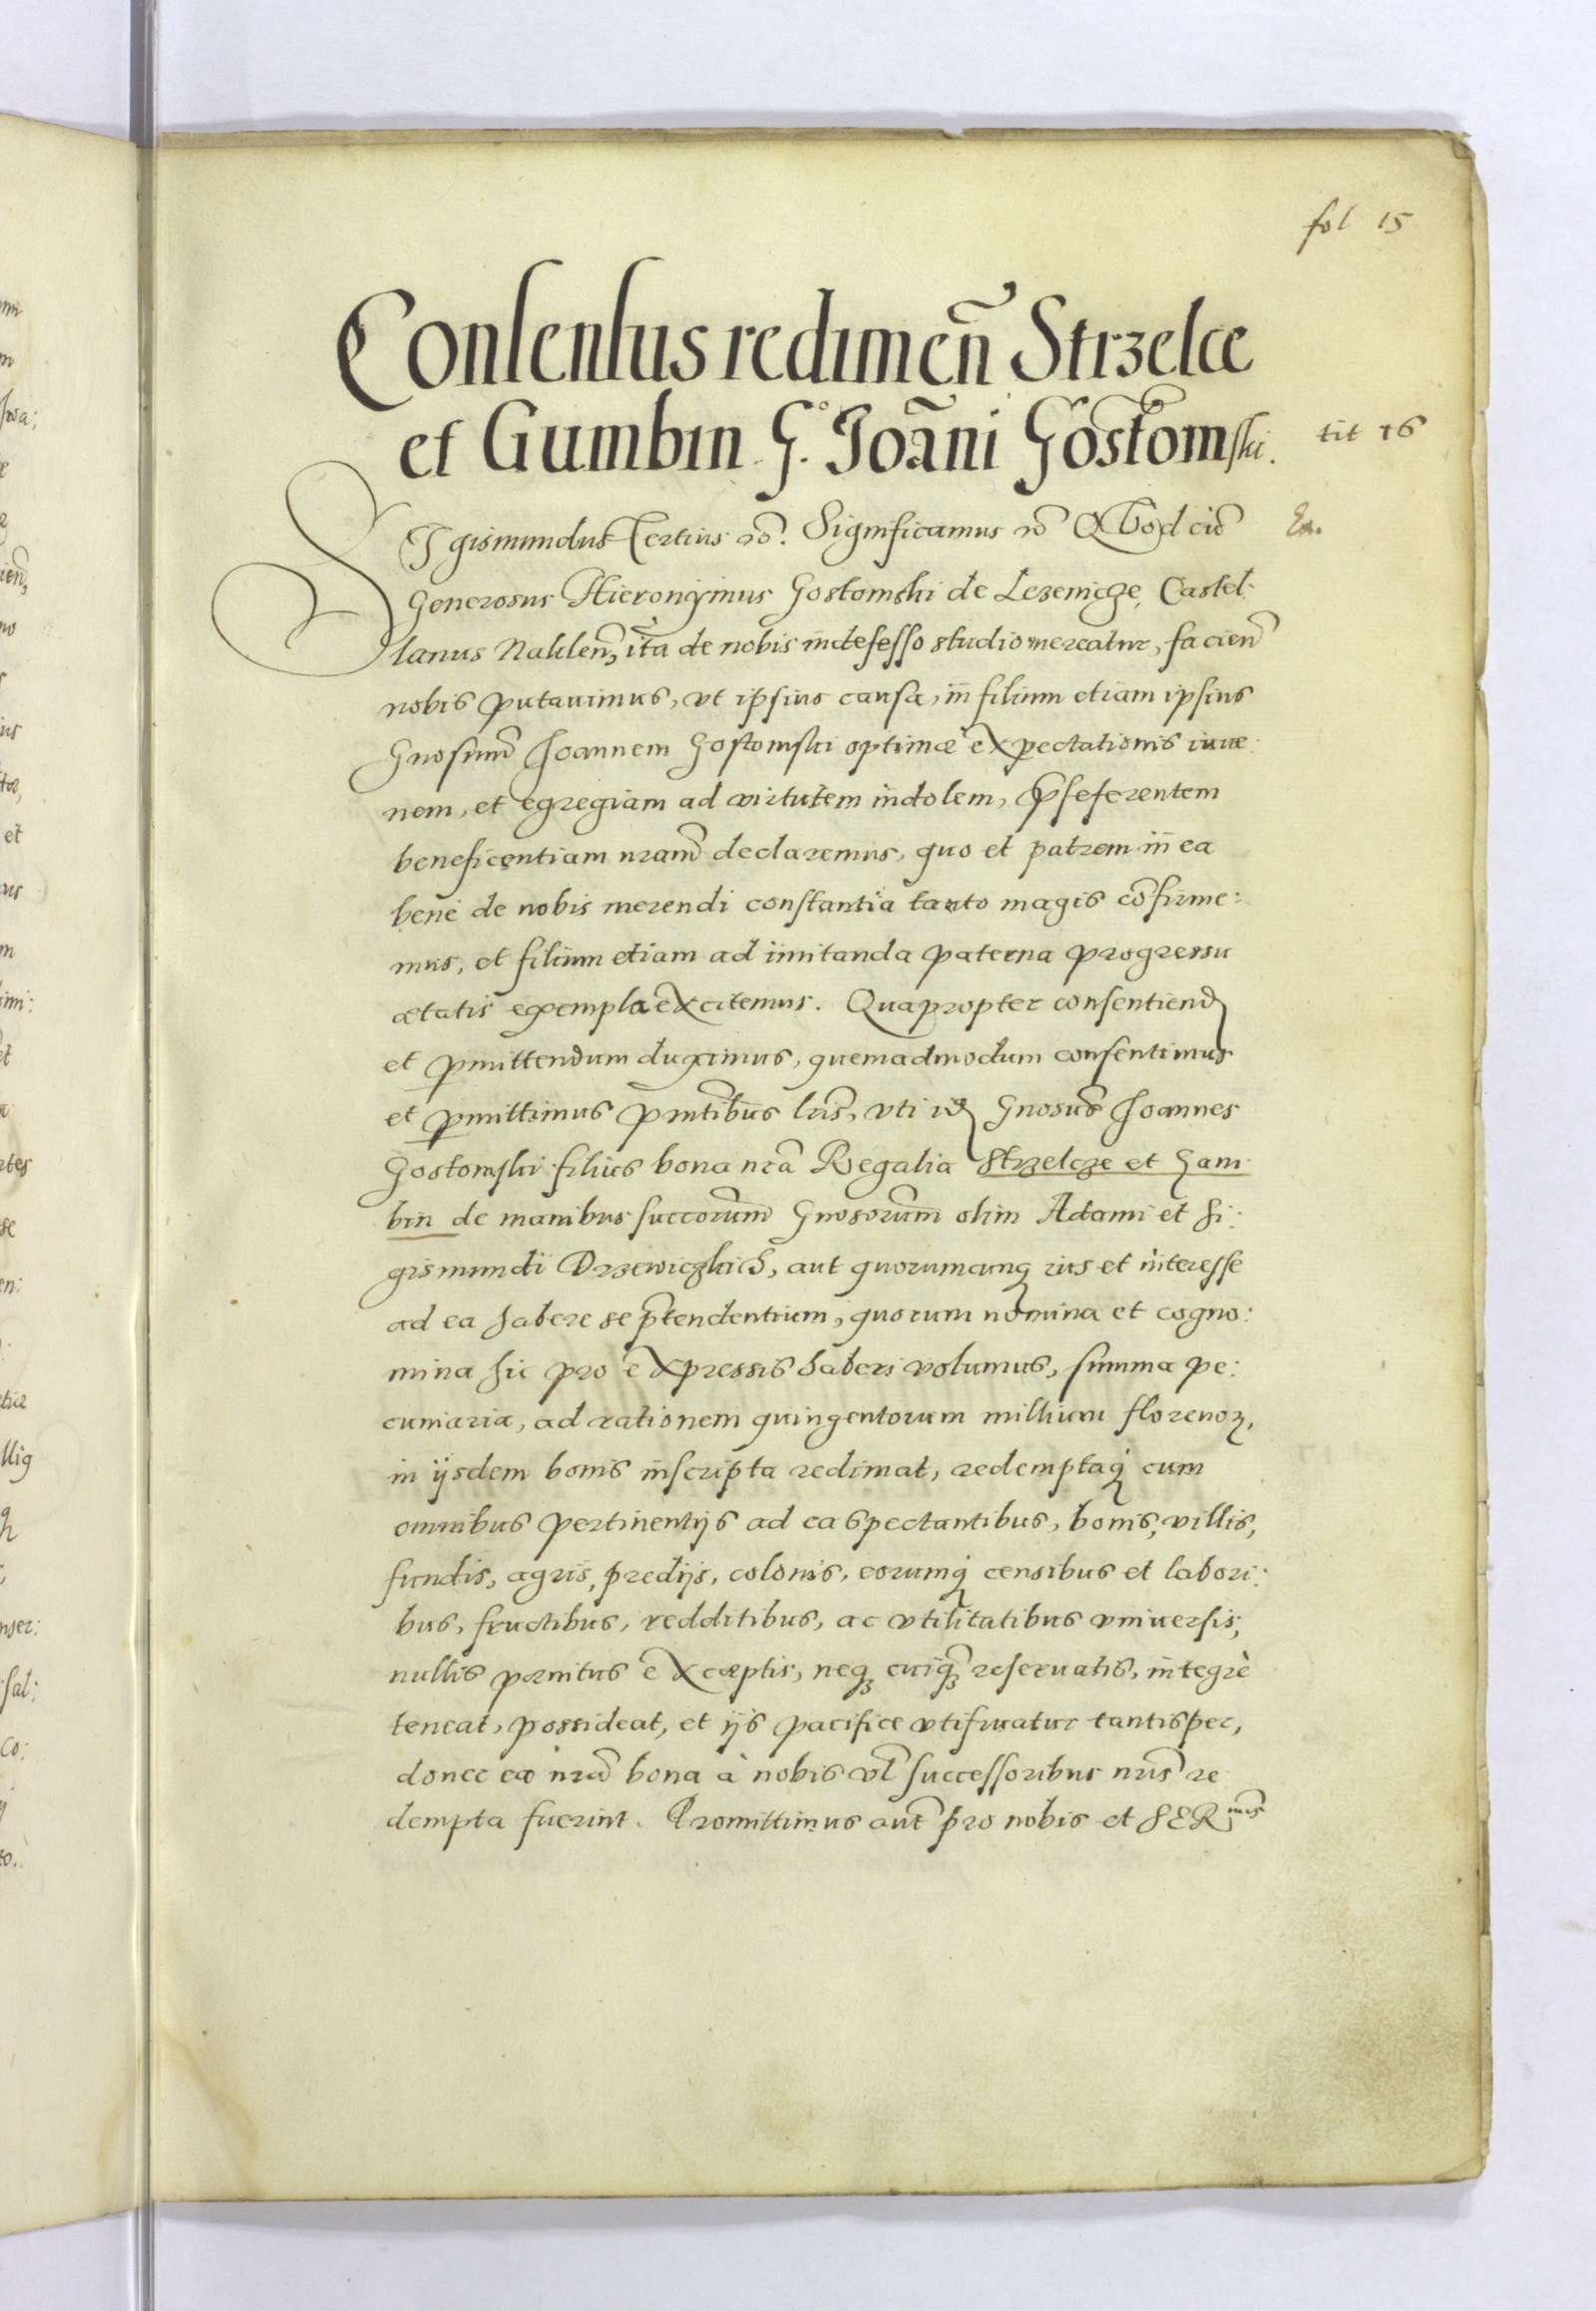 fol 15
Consensus redimeñ Strzelce
et Gumbin G. Joãni Gostomski.
tit 16
SIgismundus Tertius Significamus Quod cũ
Generosus Hieronymus Gostomski de Lezenicze, Castel:
lanus Naklen̄, ita de nobis indefesso studio mereatur, facien̄
nobis putauimus, vt ipsius causa, in filium etiam ipsius
Gnosum̃ Joannem Gostomski optimæ expectationis iuue:
nem, et egregiam ad virtutem indolem, p̃seferentem
beneficentiam nram̃ declaremus, quo et patrem in ea
bene de nobis merendi constantia tanto magis cõfirme:
mus, et filium etiam ad imitanda paterna progressu
ætatis exempla excitemus. Quapropter consentiend
et pmittendum duximus, quemadmodum consentimus
et pmittimus pñtibus lris̃, vti id Gnosus̃ Joannes
Gostomski filius bona nrã Regalia Strzelcze et Gam
bin de manibus succorum̃ Gnosorum̃ olim Adami et Si:
gismundi Drzewiczkich, aut quorumcunq ius et interesse
ad ea habere se p̃tendentium, quorum nomina et cogno:
mina hic pro expressis haberi volumus, summa pe:
cuniaria, ad rationem quingentorum millium florenoꝝ,
in ijsdem bonis inscripta redimat, redemptaq cum
omnibus pertinentijs ad ea spectantibus, bonis, villis,
fundis, agris, predijs, colonis, eorumq censibus et labori:
bus, fructibus, redditibus, ac vtilitatibus vniuersis,
nullis pœnitus excæptis, neqꝫ cuiqꝫ̃ reseruatis, integrè
teneat, possideat, et ijs pacifice vtifruatur tantisper,
donec ea nrã bona à nobis vl̃ successoribus nris̃ re
dempta fuerint. Promittimus aut̃ pro nobis et SERmis